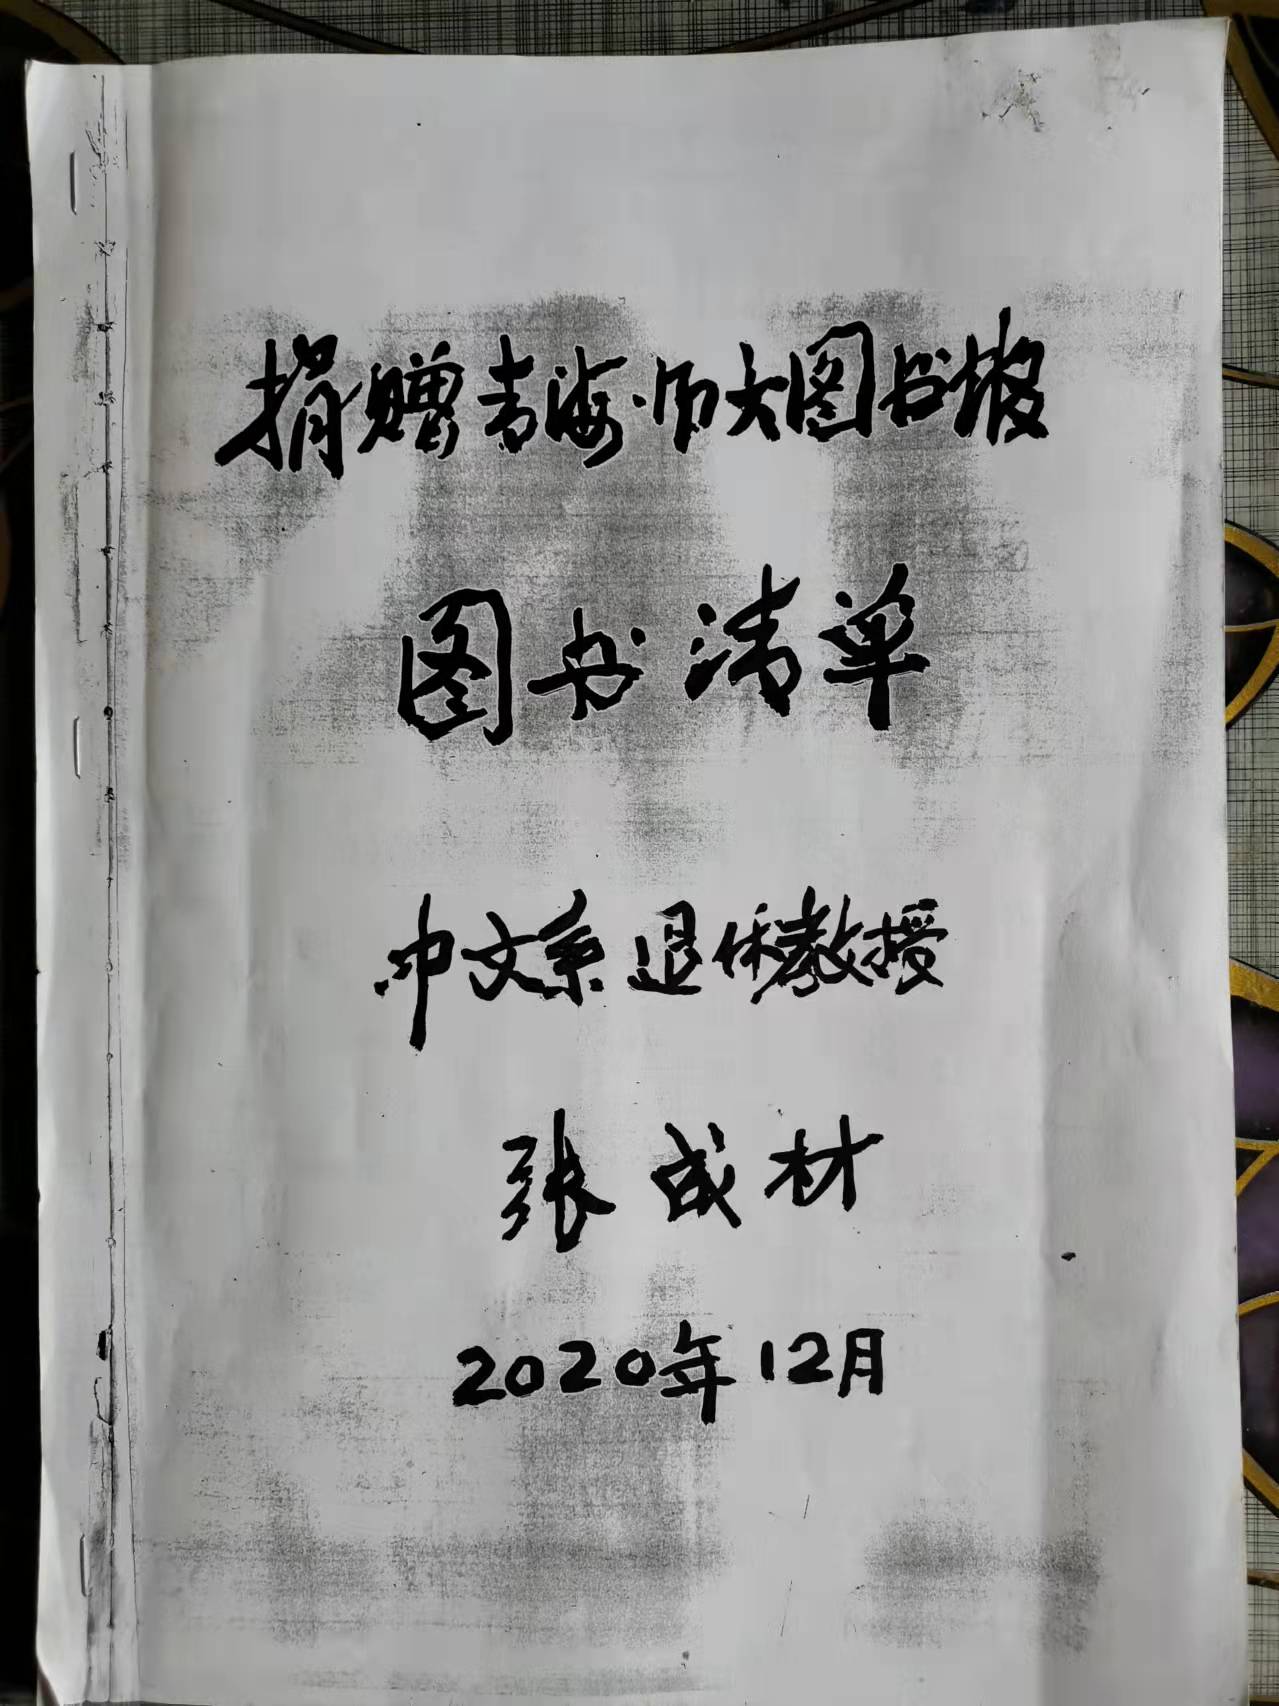 捐赠青海师大图书馆
图书清单
中文系退休教授
张成材
2020年12月